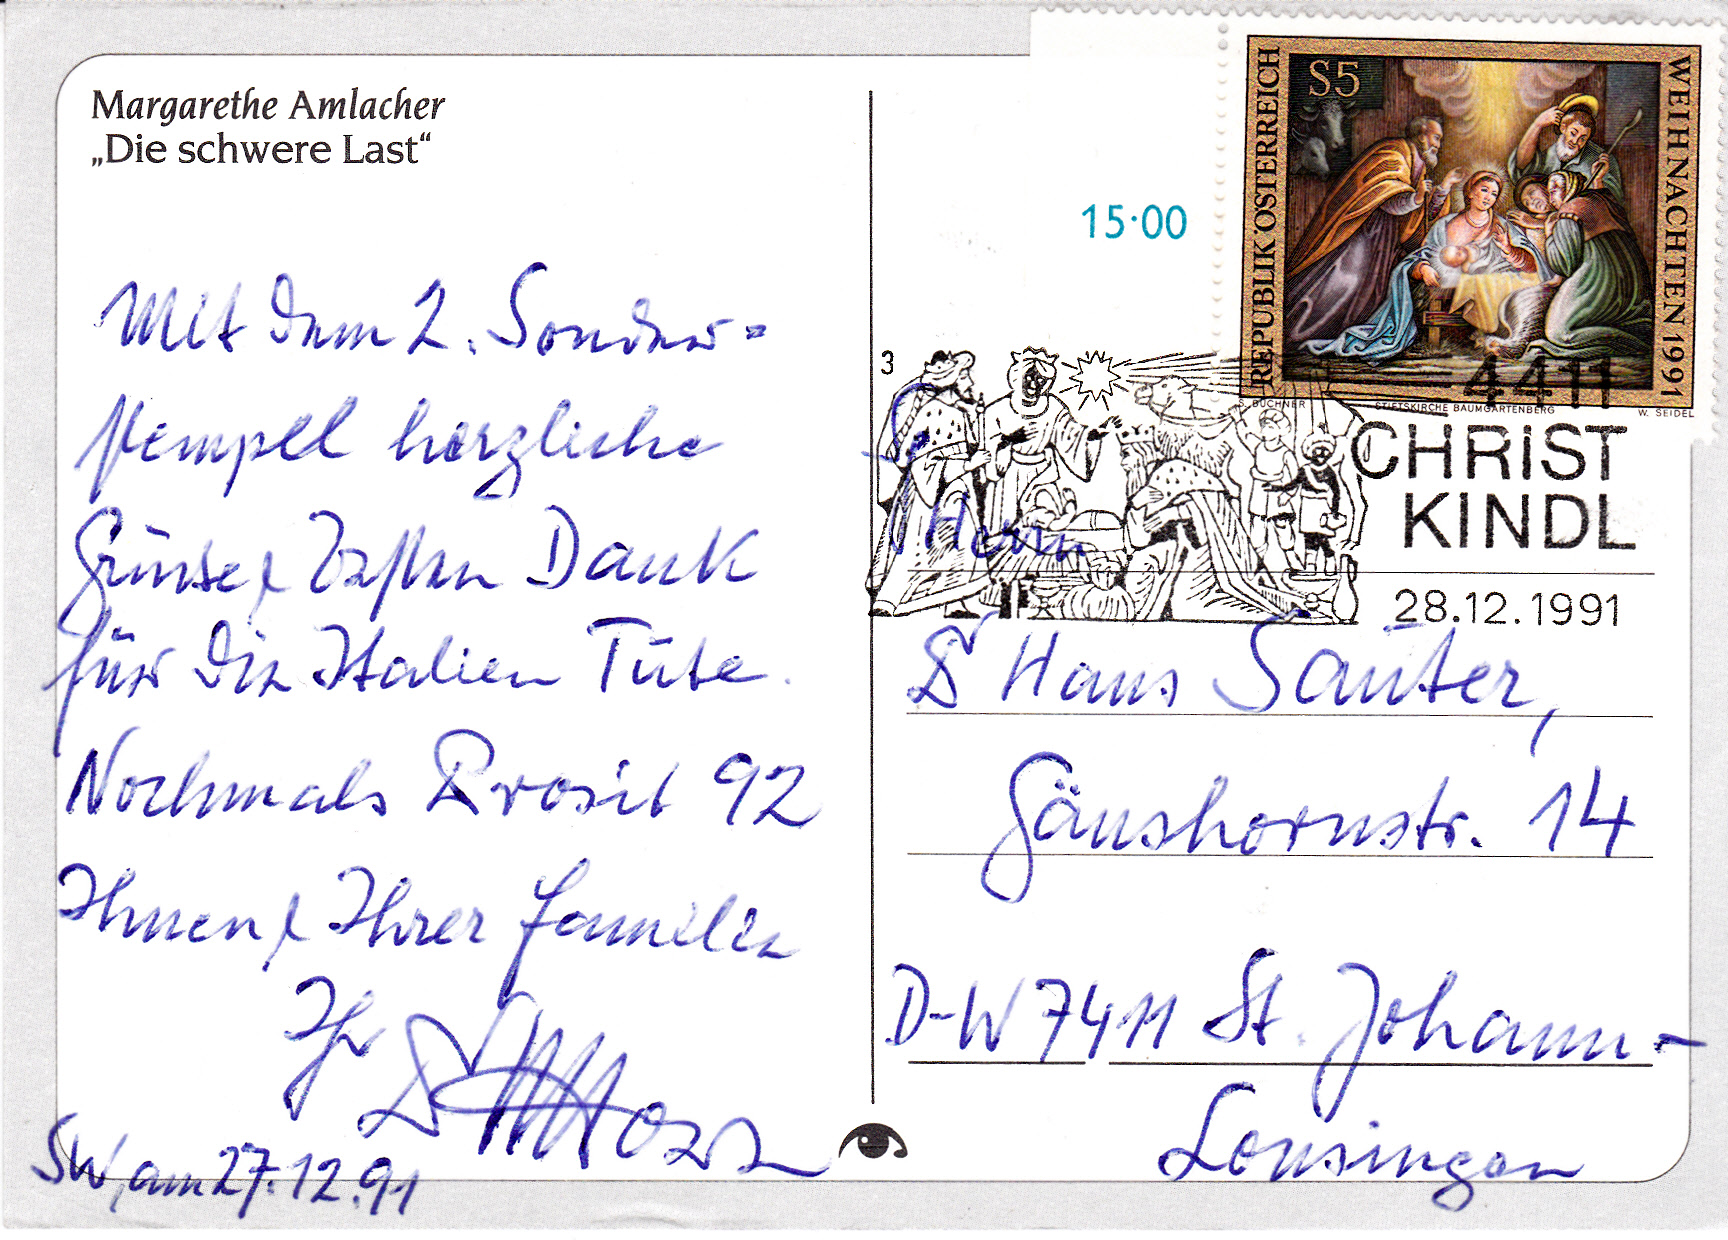 Margarethe Amlacher
„Die schwere Last“
Mit dem 2. Sonder=
stempel herzliche
Grüsse & Dank
für die Italien Tüte.
Nochmals Prosit 92
Ihnen & Ihrer Familie
Ihr
SW, am 27.12.91
15·00
S5
REPUBLIK ÖSTERREICH
WEIHNACHTEN 1991
S. BUCHNER
STIFTSKIRCHE BAUMGARTENBERG
W. SEIDEL
3
4411
CHRIST
KINDL
28.12.1991
Herrn
Hans Sauter,
Gänshornstr. 14
D-W 7411 St. Johann-
Lonsingen